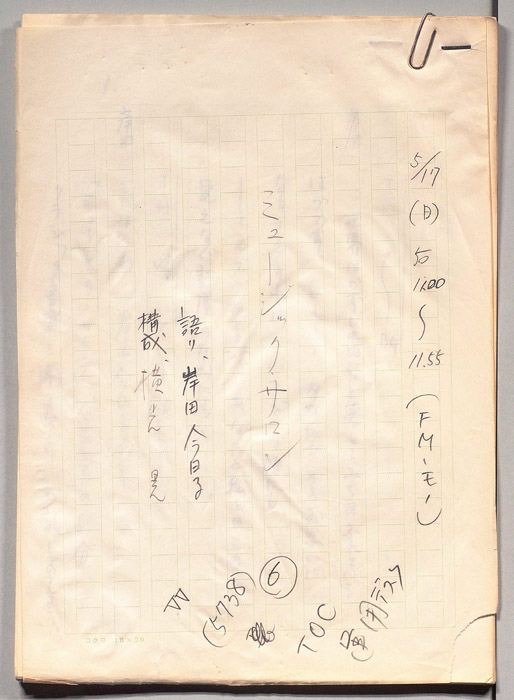 5/17(日)
11.00〜11.55(FM-モ-)
ミュージック・サロン
語り、岸田今日子
構成、横光 晃
⑥
(5738)
TOC
コクヨ